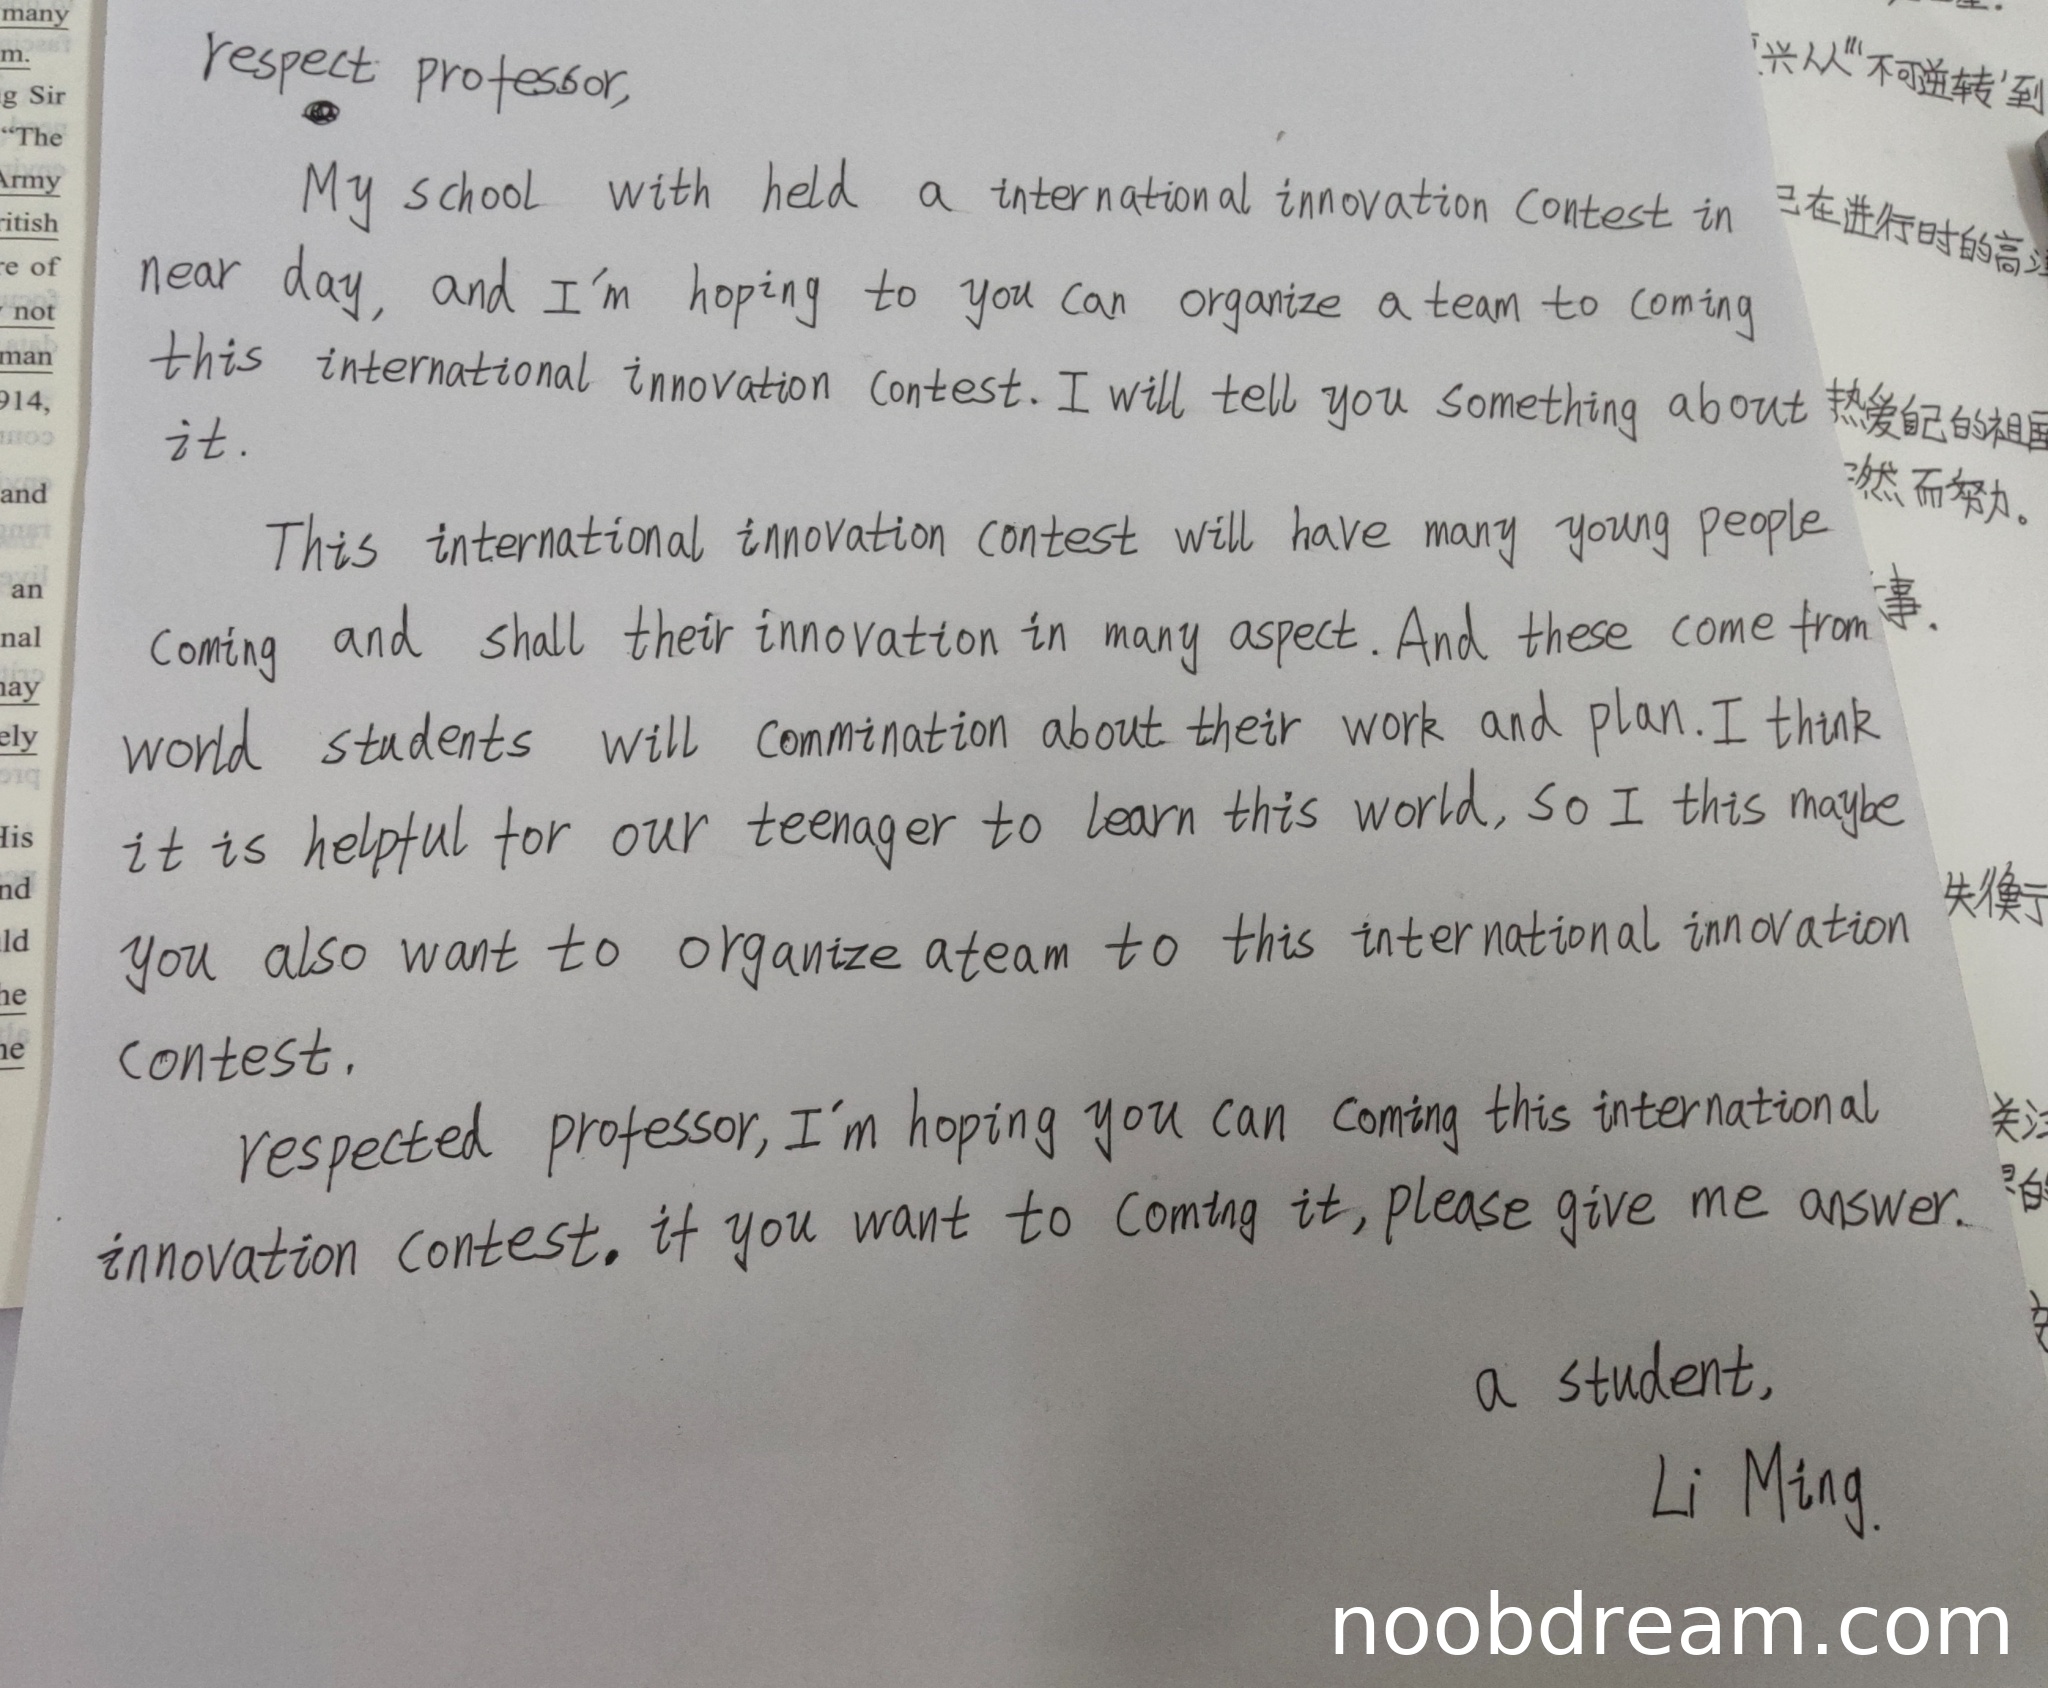 respect professor,
My school with held a international innovation contest in
near day, and I'm hoping to you can organize a team to coming
this international innovation contest. I will tell you something about
it.
This international innovation contest will have many young people
coming and shall their innovation in many aspect. And these come from
world students will commination about their work and plan. I think
it is helpful for our teenager to learn this world, so I this maybe
you also want to organize ateam to this international innovation
contest.
respected professor, I'm hoping you can coming this international
innovation contest. if you want to coming it, please give me answer.
a student,
Li Ming.
many
m.
g Sir
"The
Army
ritish
re of
not
man
914,
and
an
nal
may
ely
His
nd
ld
he
ne
兴人人"'不可逆转'到
己在进行时的高
热爱自己的祖国
然而努力。
事.
失衡于
关注
的
noobdream.com